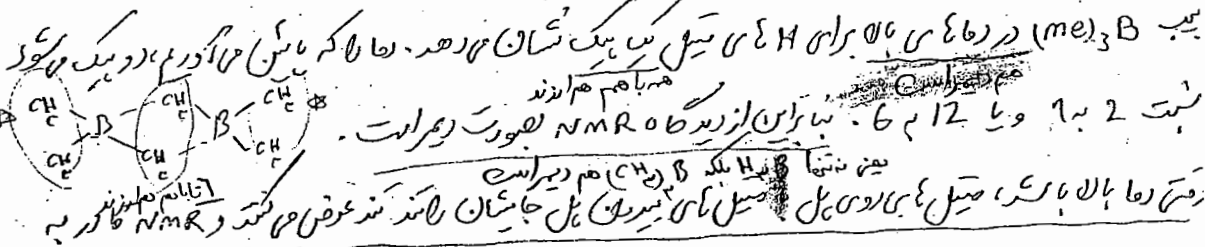 (me)₃B در دماهای بالا برای H های متیل یک پیک نشان می‌دهد. دما را که پائین می‌آوریم، دو پیک می‌شود
همه با هم هم ارزند
هم دیمر است
نسبت 2 به 1 و یا 12 به 6. بنابراین از دیدگاه NMR بصورت دیمر است.
CH₃ CH₃ CH₃ B B CH₃ CH₃ CH₃
یعنی نه تنها B بلکه (CH₃)₃B هم دیمر است
وقتی دما بالا باشد، متیل های روی پل و متیل های بیرون پل جایشان را تند تند عوض می‌کنند و NMR قادر به